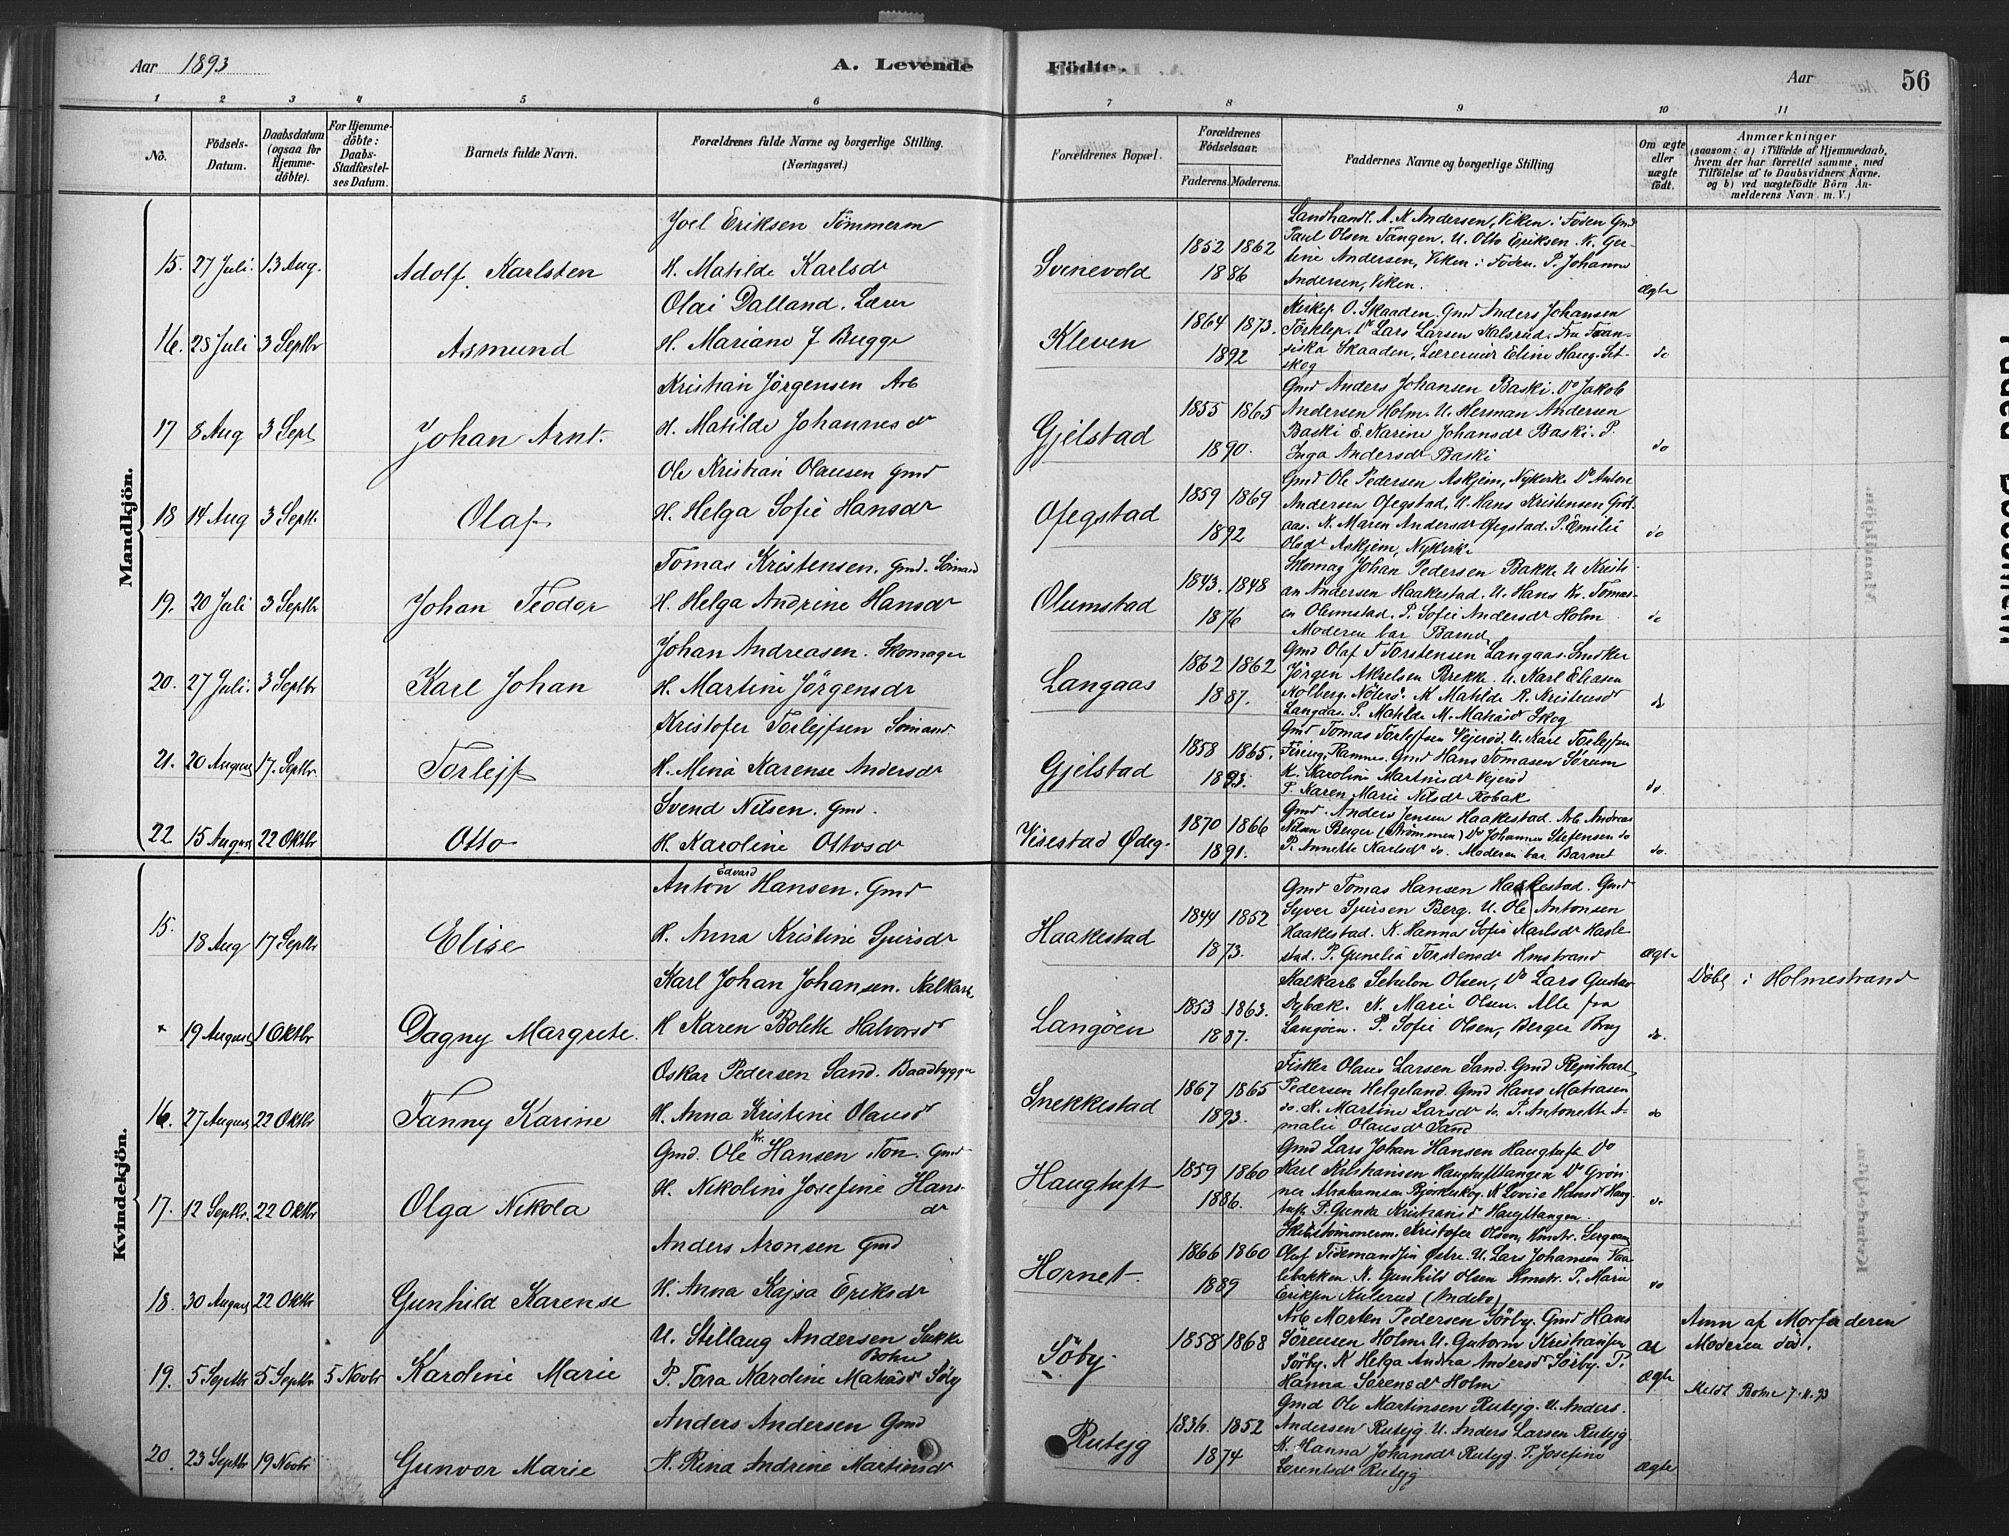 Aar 1893 A. Levende Födte. Aar 56
1 2 3 4 5 6 7 8 9 10 11
No.
Födsels-Datum.
Daabsdatum (ogsaa for Hjemme-döbte).
For Hjemme-döbte: Daabs-Stadfæstel-ses Datum.
Barnets fulde Navn.
Forældrenes fulde Navne og borgerlige Stilling. (Næringsvei.)
Forældrenes Bopæl.
Forældrenes Födselsaar.
Faderens. Moderens.
Faddernes Navne og borgerlige Stilling
Om ægte eller uægte födt.
Anmærkninger
(saasom: a) i Tilfælde af Hjemmedaab,
hvem der har forrettet samme, med
Tilföielse af to Daabsvidners Navne.
og b) ved uægtefödte Börn An-
melderens Navn m. V.)
Mandkjön.
15. 27 Juli. 13 Aug. Adolf Karlsten
Joel Eriksen Tömmerm
H. Matilde Karlsdr
Svenevold 1852 1862
1886
Landhandl. A. K Andersen, Viken i Foden Gmd
Paul Olsen Tangen. U. Otto Eriksen. K. Ger-
tine Andersen, Viken i Foden. P. Johanne
Andersen, Viken.
Ægte
16. 28 Juli 3 Septbr Asmund
Olai Dalland. Lærer
H. Mariane J Bugge
Kleven 1864 1873.
1892
O. Skaaden. Gmd Anders Johansen
Lars Larsen Fru Fran-
siska Skaaden, Eline Haug. Sit-
skog
do
17 8 Aug 3 Sept Johan Arnt.
Kristian Jörgensen Arb
H. Matilde Johannesdr
Gjelstad 1855 1865
1890.
Gmd Anders Johansen Baski. Do Jakob
Andersen Holm. U. Herman Andersen
Baski K. Karine Johansdr Baski. P.
Inga Andersdr Baski
do
18 14 Aug 3 Septr. Olaf
Ole Kristian Olausen Gmd
H. Helga Sofie Hansdr
Ofegstad 1859 1869
1892
Gmd Ole Pedersen Askjem, Nykirke Do Anton
Andersen Ofegstad, U. Hans Kristensen Gröt-
aas. K. Maren Andersdr Ofegstad. P. Emilie
Olsdr Askjem, Nykirke
do
19. 20 Juli 3 Septbr Johan Teodor
Tomas Kristensen. Gmd. Sömand
H. Helga Andrine Hansdr
Olumstad 1843. 1848
1876
Skomag Johan Pedersen Bakke U Kristi-
an Andersen Haakestad. U. Hans Kr. Tomas-
en Olumstad. P. Sofie Andersdr Holm
Moderen bar Barnet
do
20. 27 Juli. 3 Septbr Karl Johan
Johan Andreasen. Skomager
H. Martine Jörgensdr
Langaas 1862 1862
1887.
Gmd Olaf T Torstensen Langaas. Snidker
Jörgen Akselsen Brekke. U. Karl Eliasen
Kolberg. Nöterö. K Matilde R. Kristensdr
Langaas. P. Matilde M. Matiasdr Skog
do
21. 20 August 17. Septbr. Torlejf
Kristofer Torlejfsen Sömand
H. Mina Karense Andersdr
Gjelstad 1858 1865.
1893.
Gmd Tomas Torlejfsen Vejeröd. U. Karl Torlejfsen
Ramnes. Gmd Hans Tomasen Sörum
K. Karoline Martinsdr Vejeröd
P. Karen Marie Nilsdr Robak
do.
22 15 August 22 Oktbr Otto
Svend Nilsen. Gmd.
H. Karoline Ottosdr
Visestad Ødeg. 1870 1866
1891.
Gmd. Anders Jensen Haakestad. Arb Andreas
Nilsen Berger (Strömmen) Do Johannes Stefensen do
P. Annette Karlsdr do. Moderen bar Barnet
do.
Kvindekjön.
15. 18 Aug 17 Septbr Elise
Anton Edvard Hansen. Gmd
H. Anna Kristine Syversdr
Haakestad 1844 1852
1873.
Gmd Tomas Hansen Haakestad. Gmd
Syver Syversen Berg. U. Ole Antonsen
Haakestad. K. Hanna Sofie Karlsdr Hasle-
stad. P. Gunelia Torstensdr Hmstrand
Ægte
19 August 1 Oktbr Dagny Margrete.
Karl Johan Johansen. Kalkarb
H Karen Bolette Halvorsdr
Langöen 1853 1863.
1887.
Kalkarb Sehelon Olsen, Do Lars Gustav
Dybæk. K. Marie Olsen. Alle fra
Langöen. P. Sofie Olsen, Berger Brug
do.
Döbt i Holmestrand
16. 27 August 22 Oktbr Fanny Karine
Oskar Pedersen Sand. Baadbygger
H. Anna Kristine Olausdr
Snekkestad 1867 1865
1893.
Fisker Olaus Larsen Sand. Gmd Rejnhart
Pedersen Helgeland. Gmd Hans Matiasen
do. K. Martine Larsdr do P. Antonette A-
malie Olausdr Sand
do
17. 12 Septbr. 22 Oktbr Olga Nikola
Gmd. Ole Kr. Hansen Ton. Gmd
H. Nikoline Josefine Hans-
dr
Haugtuft 1859 1860
1886.
Gmd Lars Johan Hansen Haugtuft Do
Karl Kristiansen Haugtufttangen Do Grön-
ner Abrahamsen Björkeskog. K Lovise Hansdr Haug-
tuft. P. Gunda Kristiansdr Haugttangen.
do
18. 30 August 22 Oktbr Gunhild Karense
Anders Aronsen Gmd
H. Anna Kajsa Eriksdr
Hornet. 1866 1860
1889
Skibstömmerm. Kristofer Olsen, Hmstr.
Olaf Tidemandsen Östre. U. Lars Johansen Vaa-
lebakken K. Gunhild Olsen Hmstr. P. Marie
Eriksen Kulerud (Andebo)
do
19. 5 Septbr 5 Septbr 5 Novbr Karoline Marie
U. Stillaug Andersen Sukke
Botne
P. Tora Karoline Matiasdr Söby
Söby 1858 1868
Arb Morten Pedersen Sörby. Gmd Hans
Sörensen Holm. U. Gutorm Kristiansen
Sörby. K Helga Andrea Andersdr Sörby. P.
Hanna Sorensdr Holm
Ægte
Anm af Morfaderen
Moderen död.
Meldt Botne 7-11-93
20. 23 Septbr 19 Novbr Gunvor Marie
Anders Andersen Gmd
H. Rina Andrine Martinsdr
Rutejg 1836. 1852
1874
Gmd Ole Martinsen Rutejg. U. Anders.
Andersen Rutejg. U. Anders Larsen Rutejg.
K. Hanna Johansdr Rutejg. P. Josefine
Lorentsdr Rutejg
Ægte